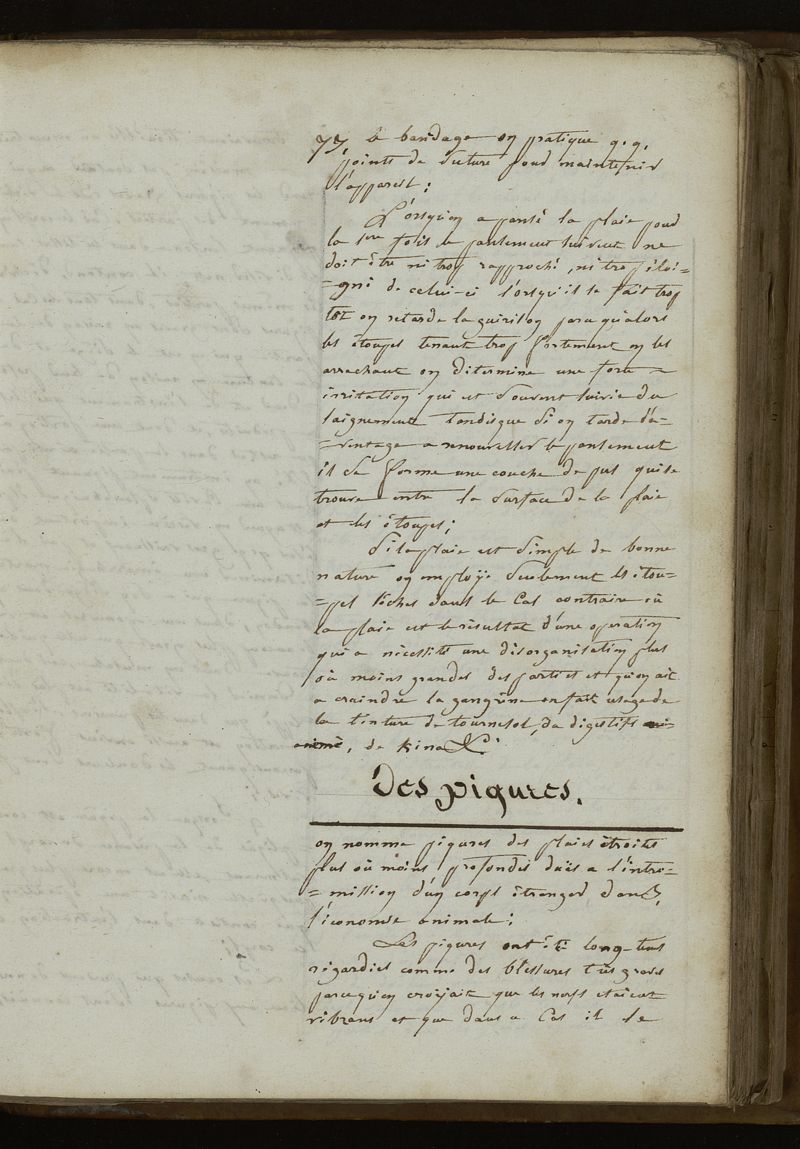 75, le bandage on pratique q.q.
points de suture pour maintenir
l'appareil;
Lorsqu'on a pansé la plaie pour
la 1ere fois le pansement suivent ne
doit être ni trop rapproché, ni trop éloi-
-gné de celui-ci lorsqu'il se fait trop
tôt on retarde la guirison parcequ'alors
les étoupes tenant trop fortement en les
arrachant on ditermine une forte
irritation qui est souvent suivie du
saignement tandisque si on tarde da-
-ventage a renouveller le pansement
il se forme une couche de pus qui se
trouve entre la surface de la plaie
et les étoupes;
si la plaie est simple de bonne
nature on employe seulement les étou-
-pes séches dans le cas contraire où
la plaie est le résultat d'une operation
qui a nécessité une disorganisation plus
où moins grandes des parties et qu'on ait
a craindre la gangréne on fait usage de
la tinture de tournesol, du digestifs
animé, de kina &.
Des piqures.
on nomme piqures des plaies étroites
plus où moins profondes dües a l'intro-
-mission d'un corps étranger dans
l'économie animale;
Les piqures ont été long-tems
régardées comme des bléssures très graves
parcequ'on croijait que les nerfs étaient
vibrans et que dans ce cas il se